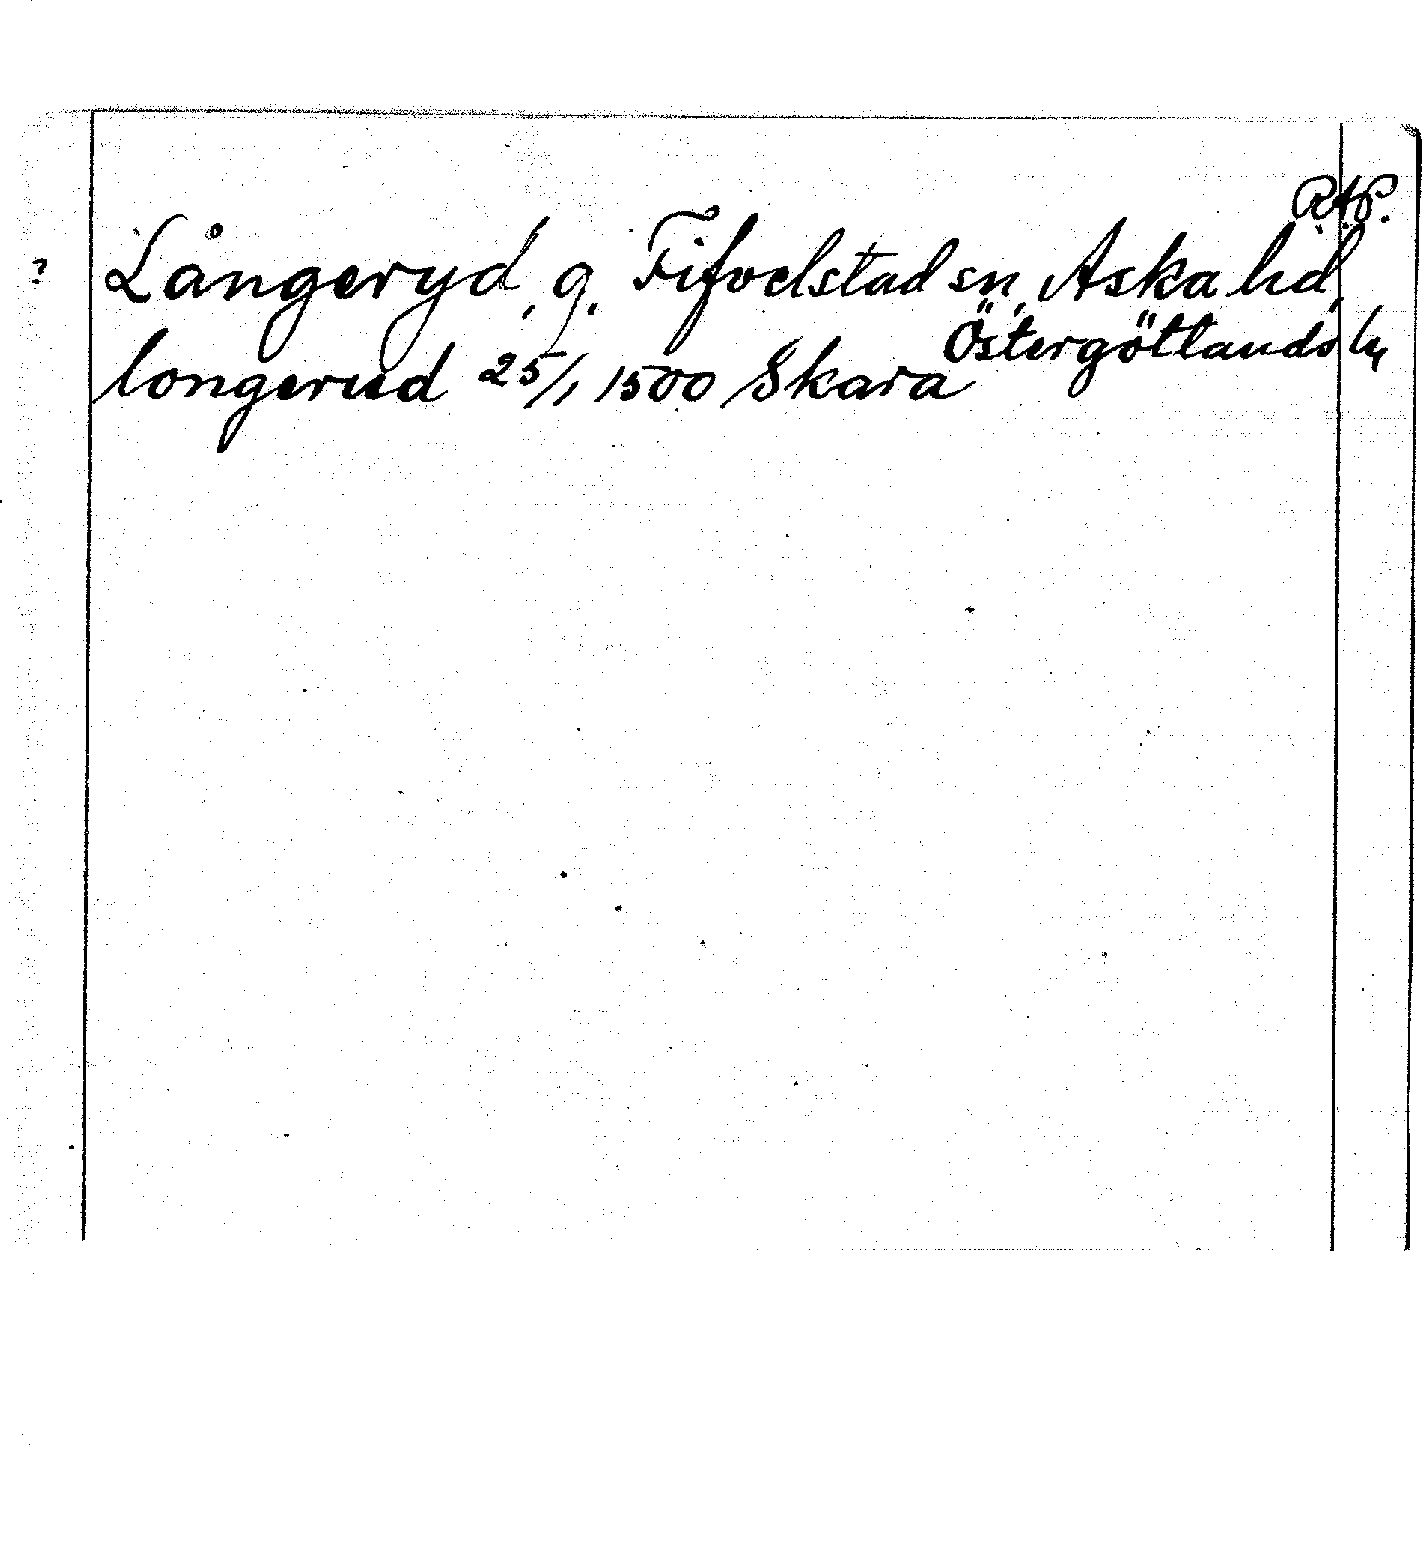 R.A.P.
? Långeryd, g. Fifvelstad sn, Aska hd,
Östergötlands ln
longerud 25/1 1500 Skara